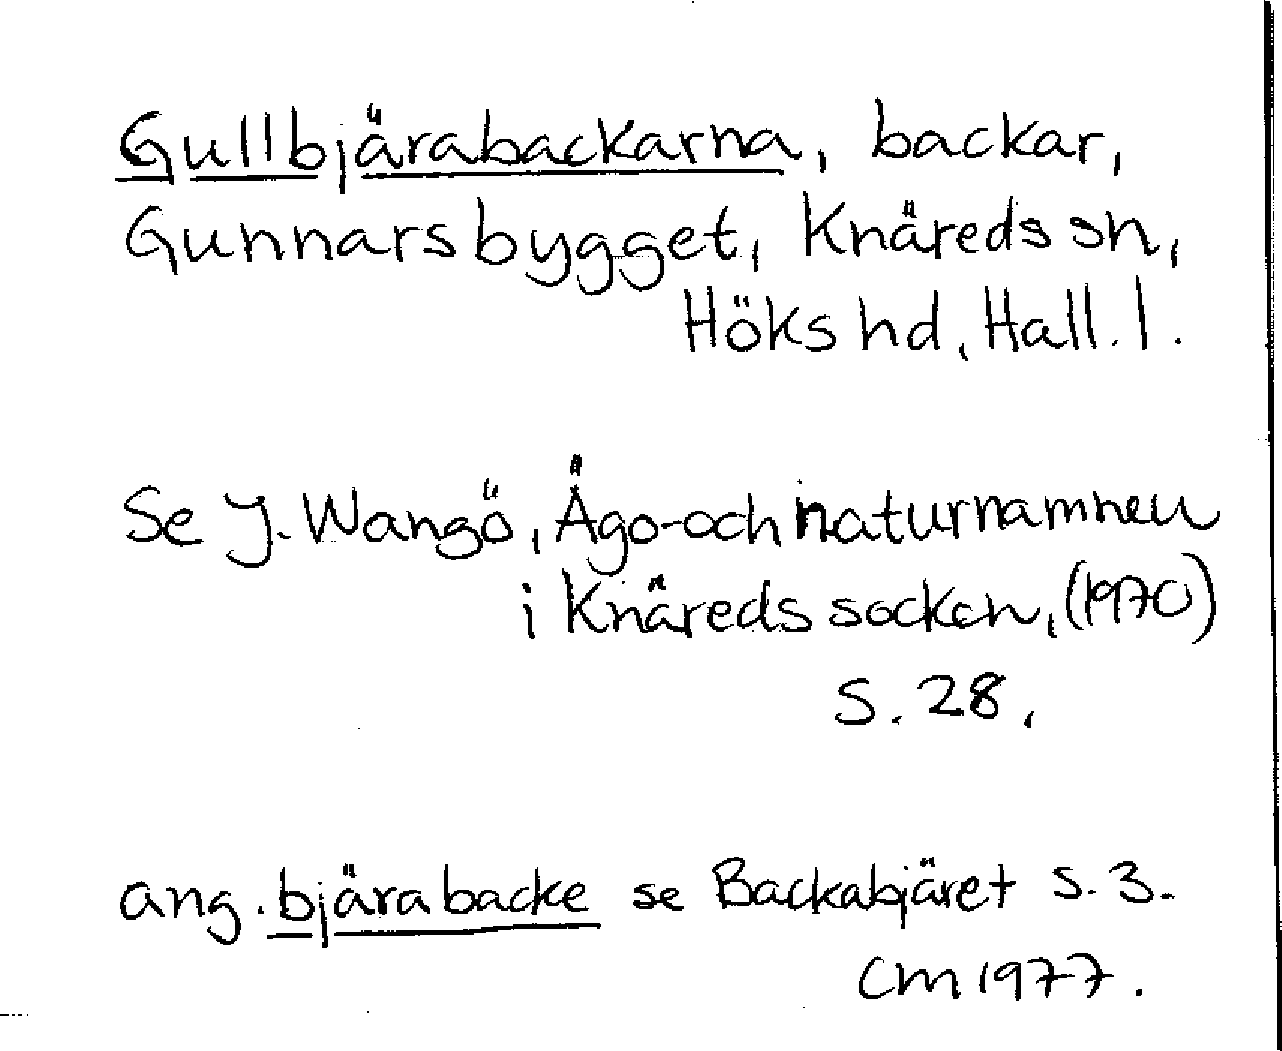 Gullbjärabackarna, backar,
Gunnarsbygget, Knäreds sn,
Höks hd, Hall. l.
Se J. Wangö, Ägo- och naturnamnen
i Knäreds socken, (1970)
s. 28.
ang. bjärabacke se Backabjäret s. 3.
CM 1977.